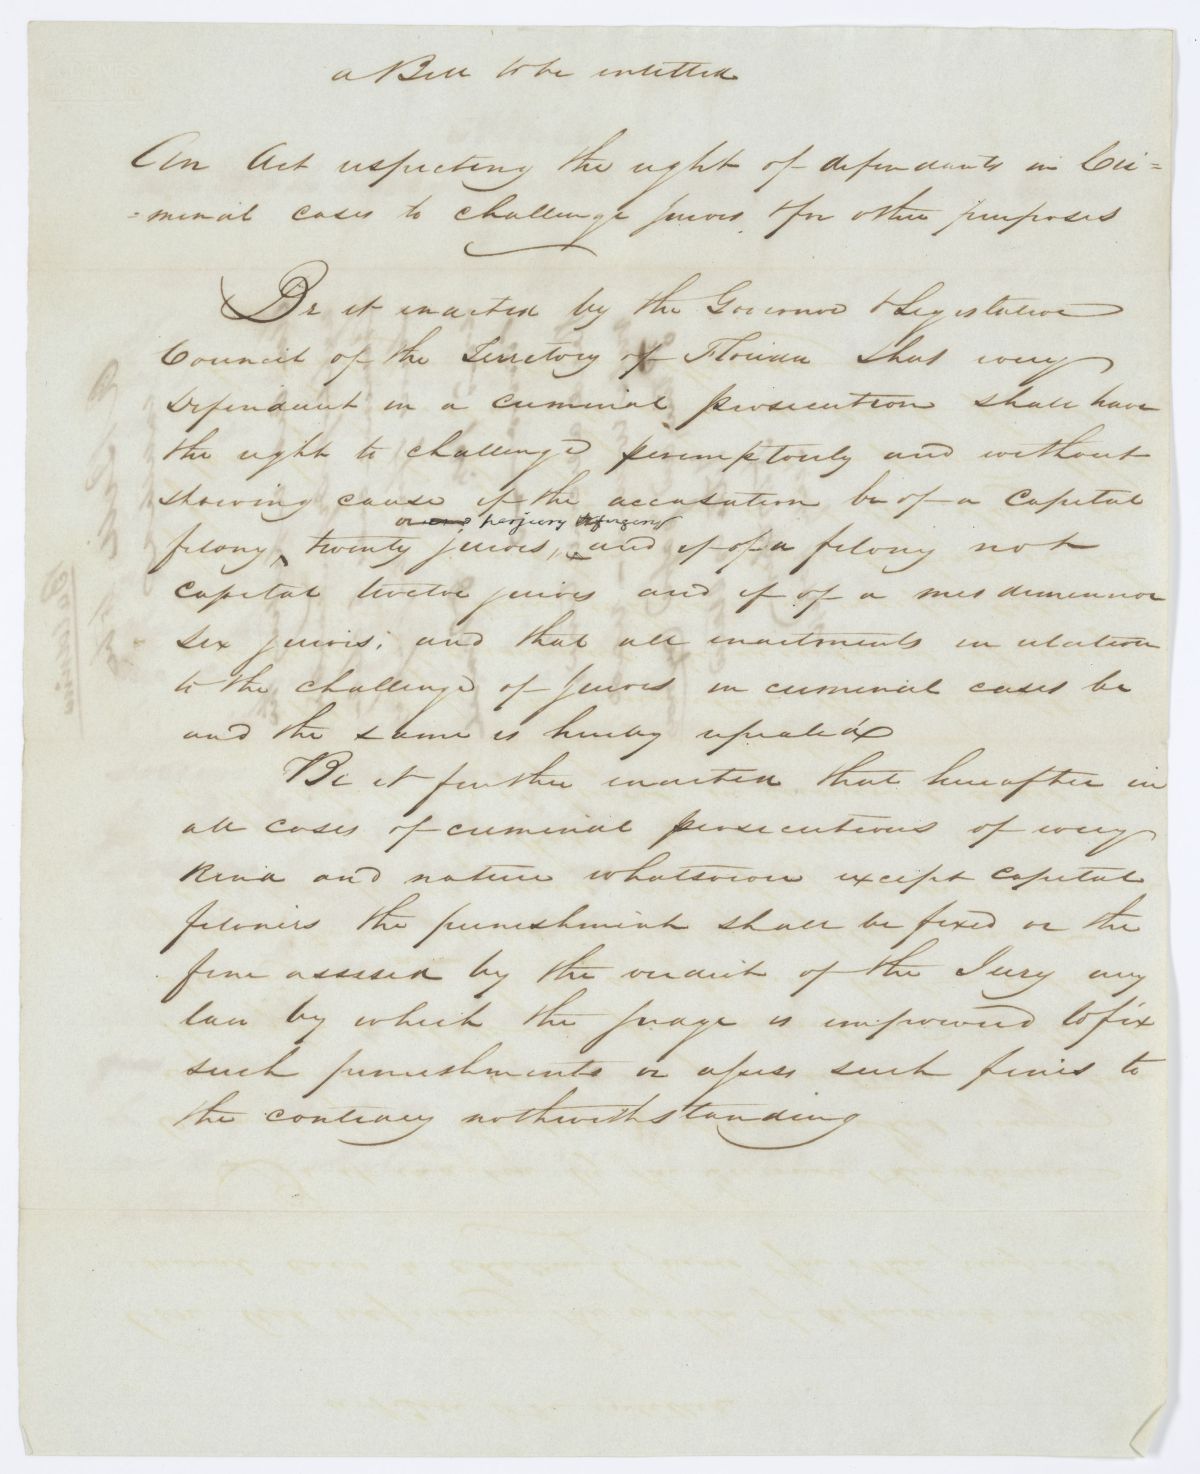 a Bill to be entitled
An Act respecting the right of defendants in Cri=
=minal cases to challenge jurors & for other purposes
Be it enacted by the Governor & Legislative
Council of the Territory of Florida That every
Defendant in a criminal prosecution shall have
the right to challenge peremptorily and without
showing cause if the accusation be of a capital
or perjury or forgery
felony twenty jurors, and if of a felony not
capital twelve jurors and if of a misdemeanor
six jurors; and that all enactments in relation
to the challenge of jurors in criminal cases be
and the same is hereby repealed
Be it further enacted that hereafter in
all cases of criminal prosecutions of every
kind and nature whatsoever except capital
felonies the punishment shall be fixed or the
fine assessed by the verdict of the Jury any
law by which the judge is empowered to fix
such punishments or assess such fines to
the contrary nothwithstanding